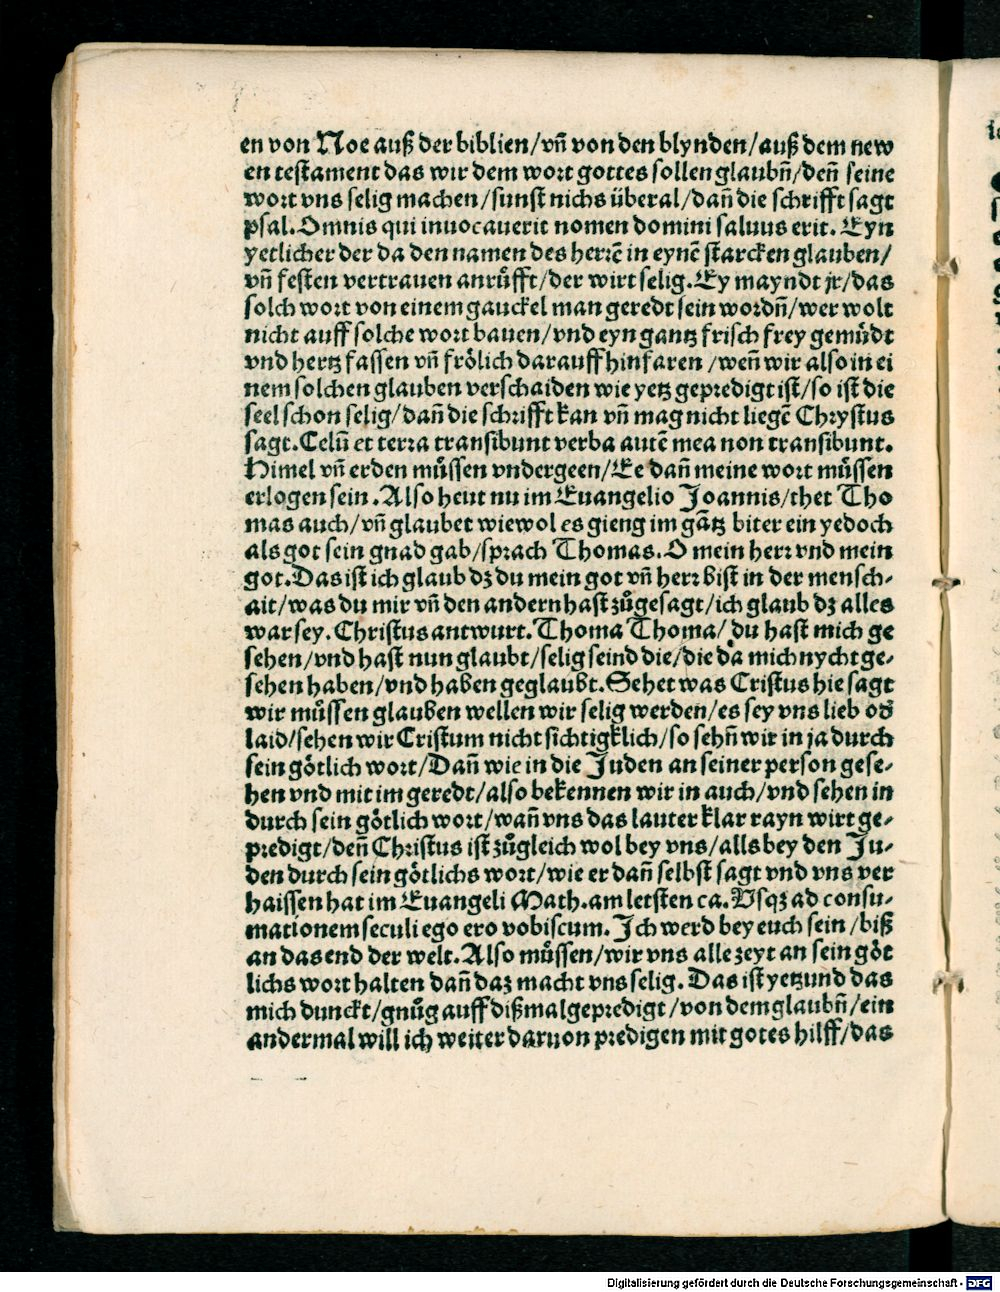 en von Noe auß der biblien/vñ von den blynden/auß dem new
en testament das wir dem wort gottes sollen glaubñ/deñ seine
wort vns selig machen/sunst nichs überal/dañ die schrifft sagt
psal. Omnis qui inuocauerit nomen domini saluus erit. Eyn
yetlicher der da den namen des herrē in eynē starcken glauben/
vñ festen vertrauen anrůfft/der wirt selig. Ey mayndt jr/das
solch wort von einem gauckel man geredt sein wordñ/wer wolt
nicht auff solche wort bauen/vnd eyn gantz frisch frey gemůdt
vnd hertz fassen vñ frölich darauff hinfaren /weñ wir also in ei
nem solchen glauben verschaiden wie yetz gepredigt ist/so ist die
seel schon selig/dañ die schrifft kan vñ mag nicht liegē Chrystus
sagt. Celū et terra transibunt verba autē mea non transibunt.
Himel vñ erden můssen vndergeen/Ee dañ meine wort můssen
erlogen sein. Also heut nu im Euangelio Joannis/thet Tho
mas auch/vñ glaubet wiewol es gieng im gātz biter ein yedoch
als got sein gnad gab/sprach Thomas. O mein herr vnd mein
got. Das ist ich glaub dz du mein got vñ herr bist in der mensch-
ait/was du mir vñ den andern hast zůgesagt/ich glaub dz alles
war sey. Christus antwurt. Thoma Thoma/du hast mich ge
sehen/vnd hast nun glaubt/selig seind die/die da mich nycht ge-
sehen haben/vnd haben geglaubt. Sehet was Cristus hie sagt
wir můssen glauben wellen wir selig werden/es sey vns lieb oď
laid/sehen wir Cristum nicht sichtigklich/so sehñ wir in ja durch
sein götlich wort/Dañ wie in die Juden an seiner person gese-
hen vnd mit im geredt/also bekennen wir in auch/vnd sehen in
durch sein götlich wort/wañ vns das lauter klar rayn wirt ge-
predigt/deñ Christus ist zůgleich wol bey vns/alls bey den Ju-
den durch sein götlichs wort/wie er dañ selbst sagt vnd vns ver
haissen hat im Euangeli Math. am letsten ca. Vsqz ad consu-
mationem seculi ego ero vobiscum. Jch werd bey euch sein/biß
an das end der welt. Also můssen/wir vns alle zeyt an sein göt
lichs wort halten dañ daz macht vns selig. Das ist yetzund das
mich dunckt/gnůg auff dißmal gepredigt/von dem glaubñ/ein
andermal will ich weiter daruon predigen mit gotes hilff/das
Digitalisierung gefördert durch die Deutsche Forschungsgemeinschaft - DFG